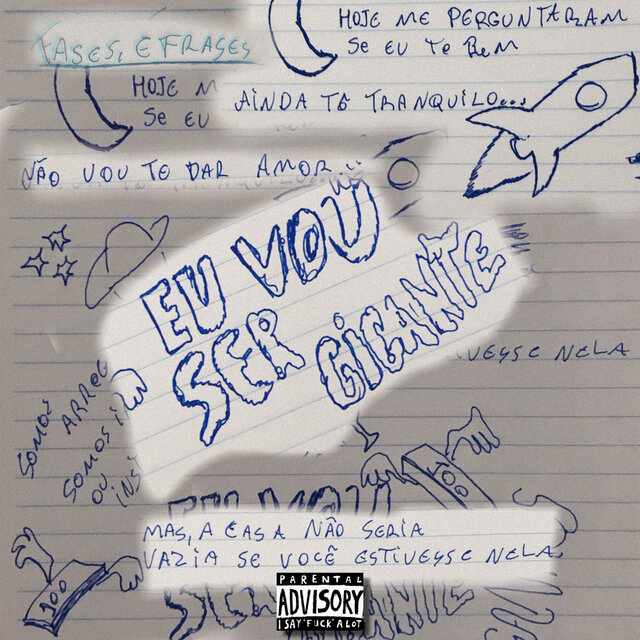 FASES, E FRASES
HOJE ME PERGUNTARAM
SE EU TO BEM
HOJE M
SE EU
AINDA TÔ TRANQUILO...
NÃO VOU TO DAR AMOR
EU VOU
SER GIGANTE
VEYSE NELA
SOMOS
ARROG
SOMOS I
OU
INS
100
100
EU VOU
MAS, A CASA NÃO SERIA
VAZIA SE VOCÊ ESTIVEYSE NELA
PARENTAL
ADVISORY
I SAY "FUCK" A LOT